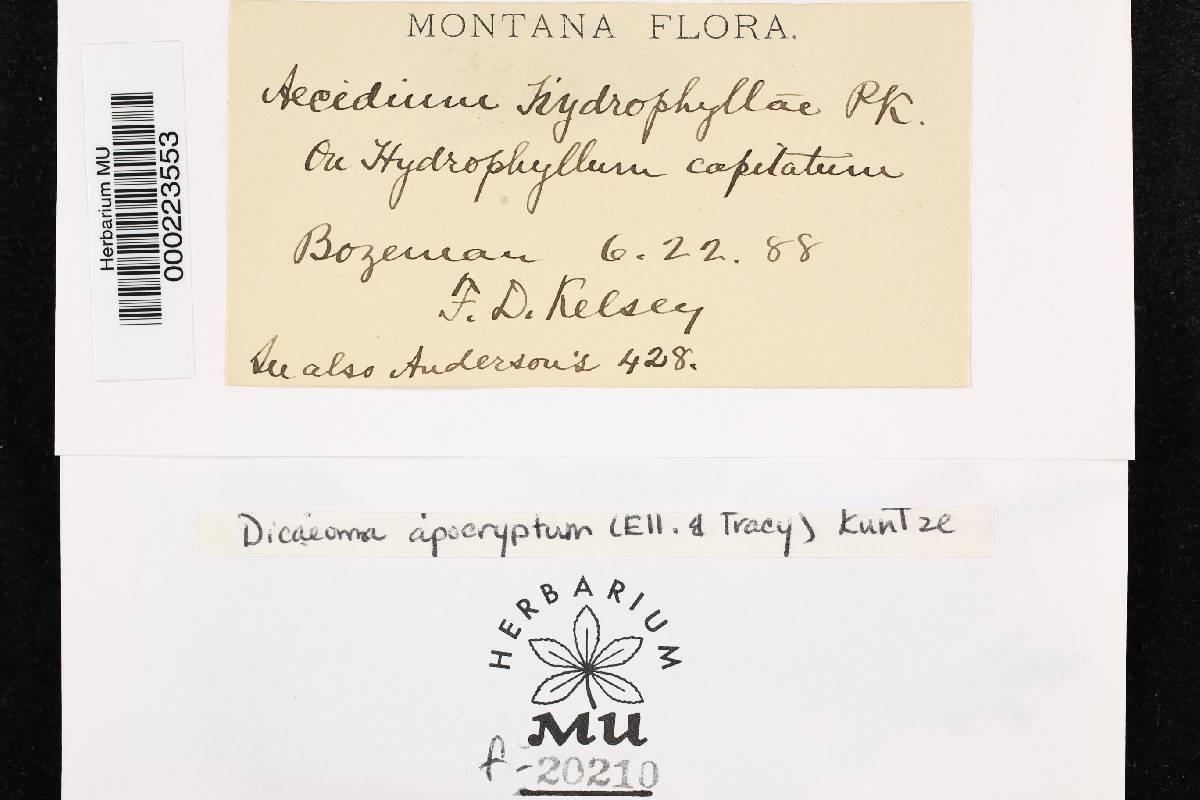 MONTANA FLORA.
Aecidium Hydrophyllae PK.
On Hydrophyllum capitatum
Bozeman 6.22.88
F. D. Kelsey
See also Anderson's 428.
Herbarium MU
000223553
Dicaeoma apocryptum (Ell. & Tracy) Kuntze
HERBARIUM
MU
f-20210